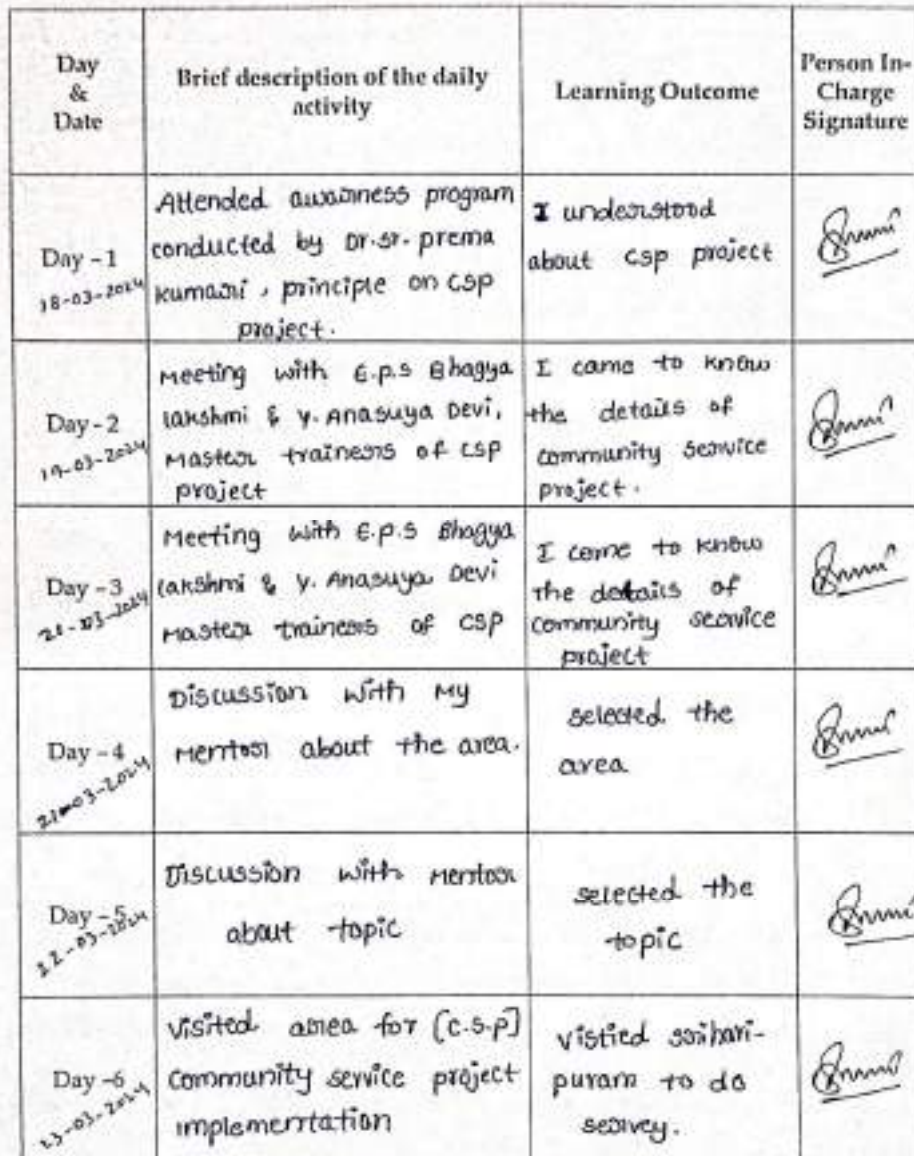 Day
&
Date
Brief description of the daily
activity
Learning Outcome
Person In-
Charge
Signature
Day - 1
18-03-2024
Attended awarness program
conducted by Dr.sr. prema
kumari, principle on CSP
project.
I understood
about CSP project
Day - 2
19-03-2024
Meeting with E.p.s Bhagya
lakshmi & y. Anasuya Devi,
Master trainers of CSP
project
I came to know
the details of
community service
project.
Day - 3
20-03-2024
Meeting with E.p.s Bhagya
lakshmi & y. Anasuya Devi
Master trainers of CSP
I come to know
the details of
community service
project
Day - 4
21-03-2024
Discussion with My
Mentor about the area.
selected the
area
Day - 5
22-03-2024
Discussion with Mentor
about topic
selected the
topic
Day -6
23-03-2024
visited area for [C.S.P]
community service project
implementation
vistied srihari-
puram to do
servey.